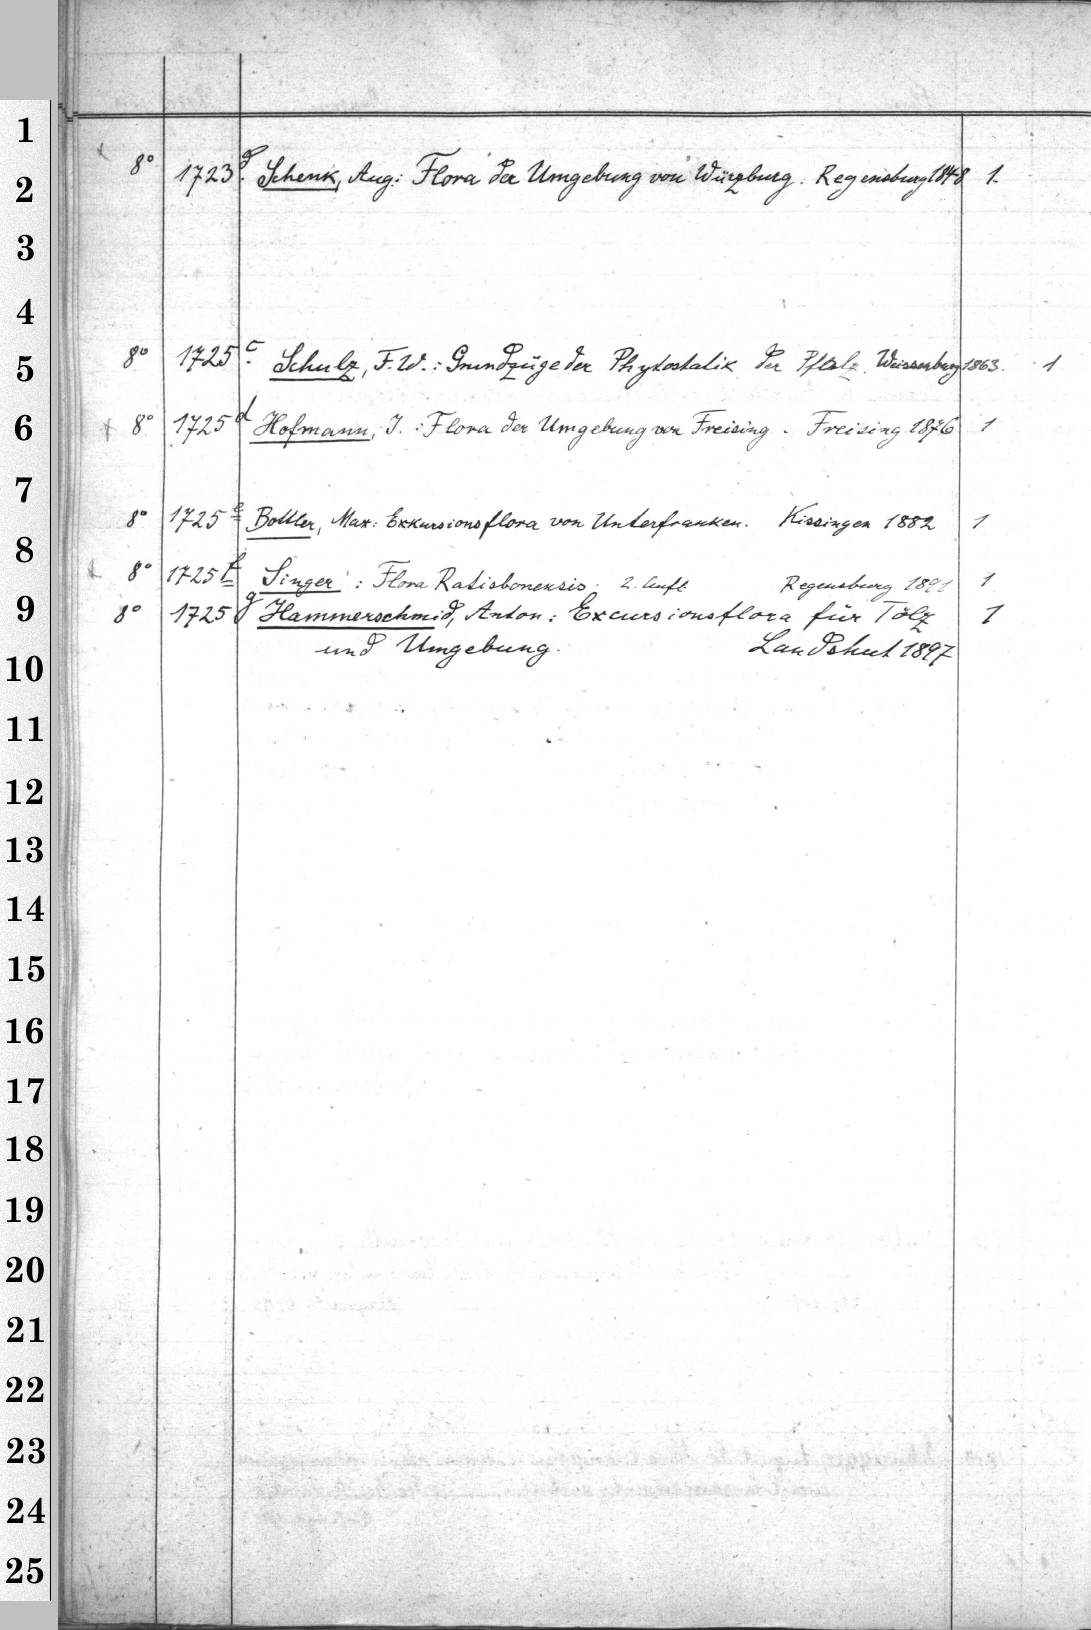 1
2
3
4
5
6
7
8
9
10
11
12
13
14
15
16
17
18
19
20
21
22
23
24
25
8° 1723d. Schenk, Aug: Flora der Umgebung von Würzburg. Regensburg 1848 1.
8° 1725c. Schulz, F. W.: Grundzüge der Phytostatik der Pfalz. Weissenburg 1863. 1
8° 1725d Hofmann, J.: Flora der Umgebung von Freising. Freising 1876 1
8° 1725e Bottler, Max: Exkursionsflora von Unterfranken. Kissingen 1882 1
8° 1725f Singer: Flora Ratisbonensis. 2. Aufl Regensburg 1891 1
8° 1725g Hammerschmid, Anton: Excursionsflora für Tölz 1
und Umgebung. Landshut 1897